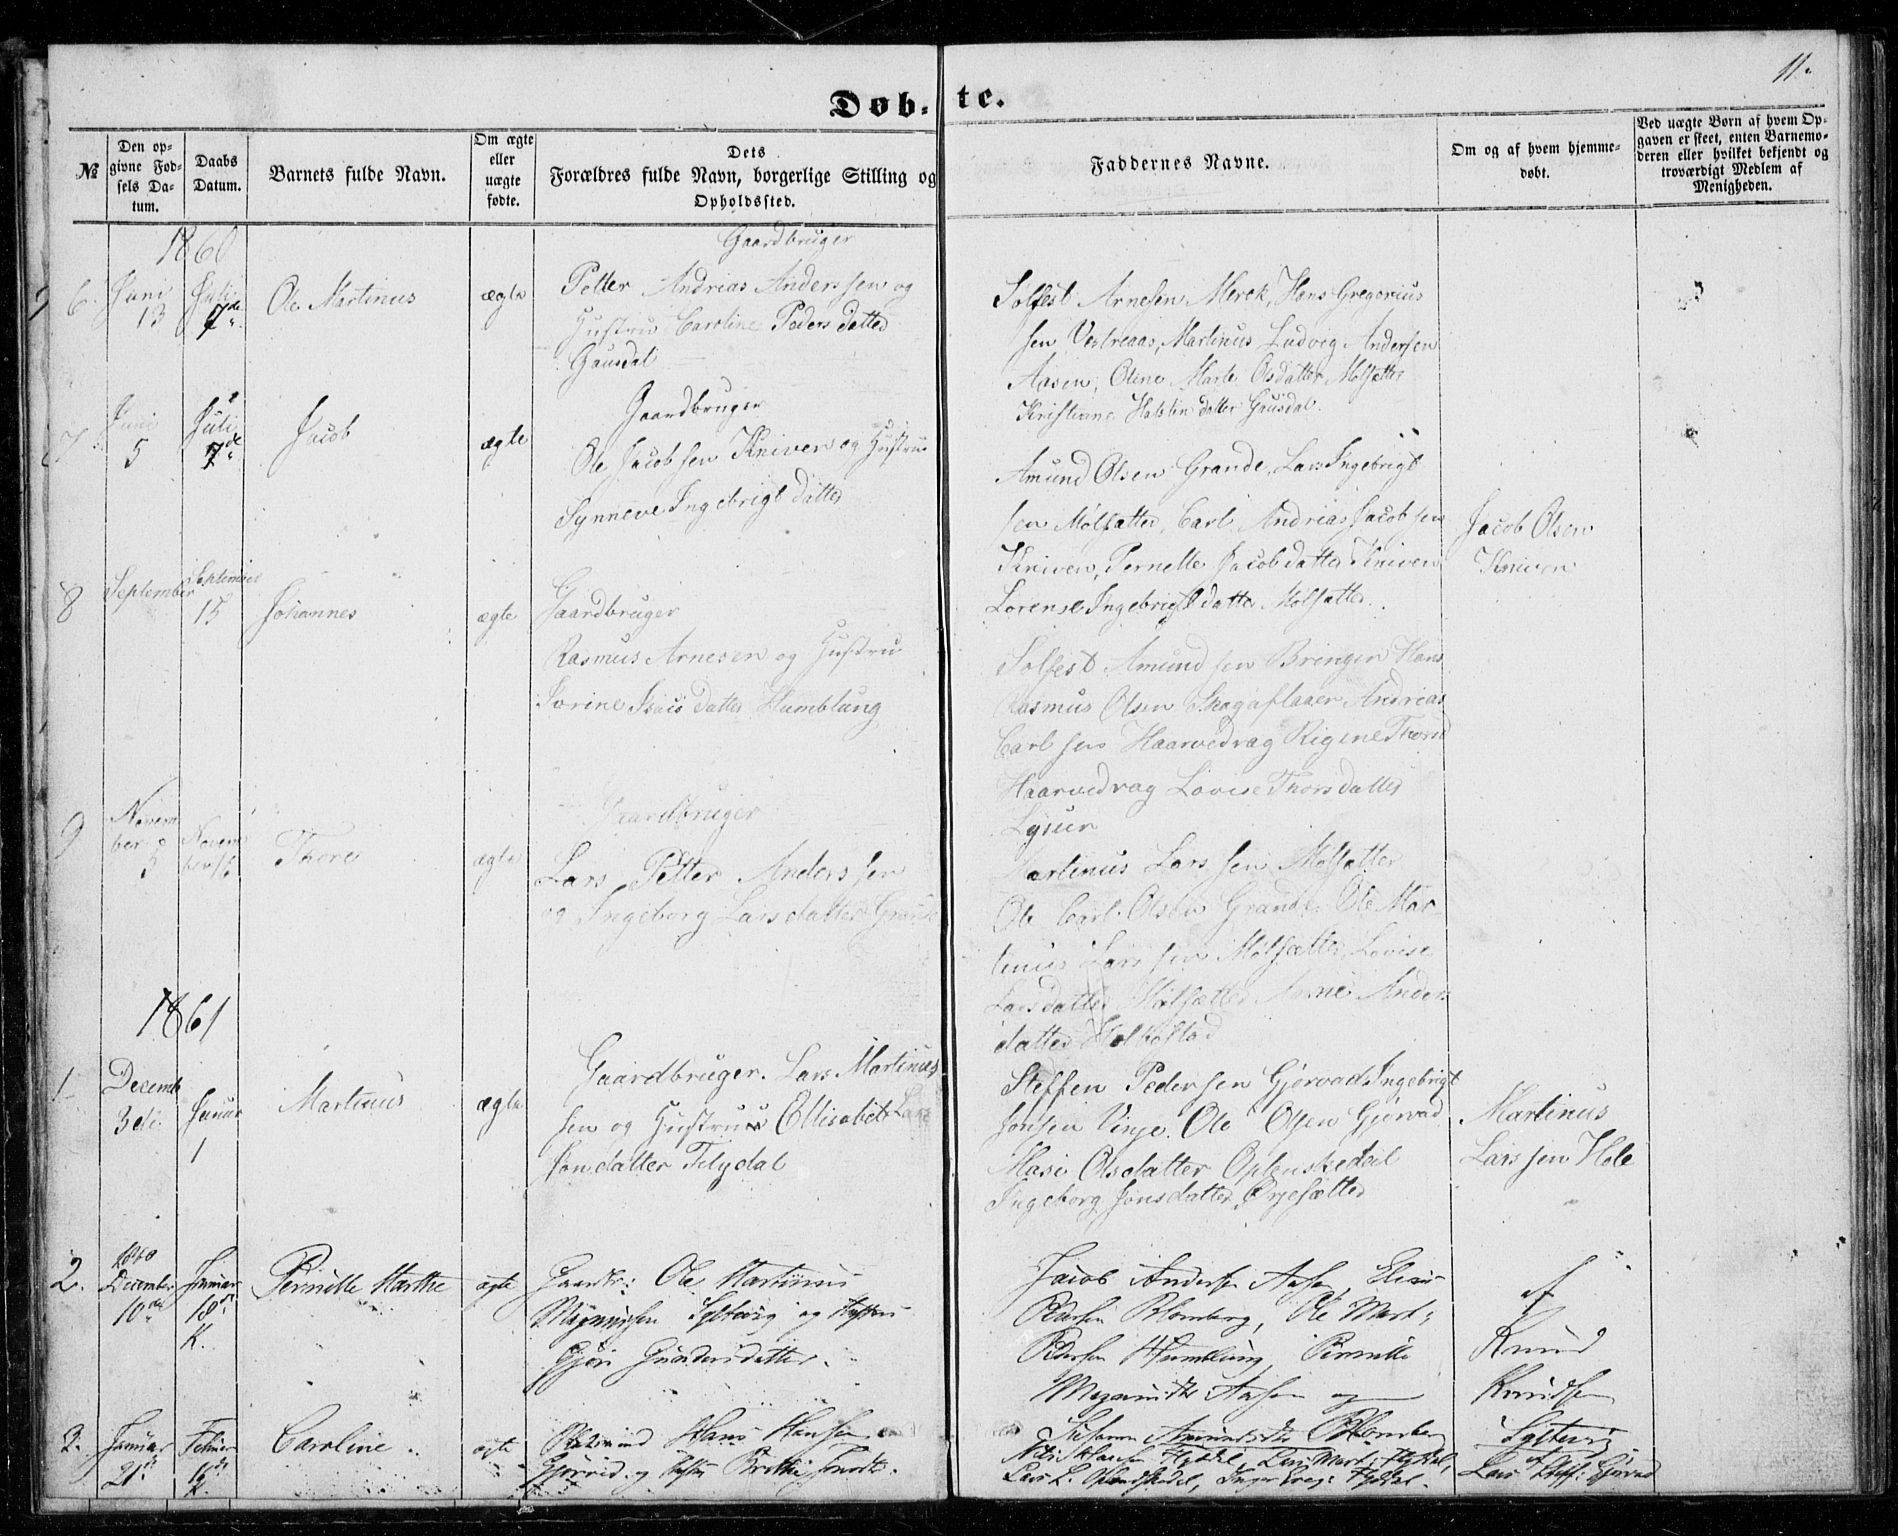 11.
Døb- te.
№
Den op-
givne Fød-
sels Da-
tum.
Daabs
Datum.
Barnets fulde Navn.
Om ægte
eller
uægte
fødte.
Dets
Forældres fulde Navn, borgerlige Stilling og
Opholdssted.
Faddernes Navne.
Om og af hvem hjemme-
døbt.
Ved uægte Børn af hvem Op-
gaven er skeet, enten Barnemo-
deren eller hvilket bekjendt og
troværdigt Medlem af
Menigheden.
1860
6. Juni
13
Juli
7de
Ole Martinus
ægte
Gaardbruger
Petter Andrias Anderssen og
Hustru Caroline Pedersdatter
Gausdal
Solfest Arnesen Merok, Hans Gregorius
sen Vestreaas, Martinus Ludvig Andersen
Aasen, Oline Marte Olsdatter Molsætter
Kristianne Halstindatter Gausdal.
7 Juni
5
Juli
7de
Jacob
ægte
Gaardbruger
Ole Jacobsen Kniven og Hustru
Synneve Ingebrigtdatter
Amund Olsen Grande, Lars Ingebrigt
sen Molsætter, Carl Andrias Jacobsen
Kniven, Pernelle Jacobdatter Kniven
Lorense Ingebrigtdatter Molsætter.
Jacob Olsen
Kniven
8 September
September
15
Johannes
ægte
Gaardbruger
Rasmus Arnesen og Hustru
Sorine Isacsdatter Humblung
Solfest Amundsen Bringen Hans
Rasmus Olsen Skagaflaaen Andreas
Carlsen Haarvedrag Rigine Thors
Haarvedrag Lovise Thorsdatter
9 Novem
ber
5
Novem
ber
Thore
ægte
Gaardbruger
Lars Petter Anderssen
og Ingeborg Larsdatter
Martinus Larssen Molsætter
Ole Carl Olsen Grande. Ole Mar
tinius Larssen Molsætter, Lovise
Larsdatter Molsætter Anne Anders
datter
1861
1 Decemb
3de
Januar
1
Martinus
ægte
Gaardbruger. Lars Martinus
sen og Hustruu Ellisabet Lars
Jonsdatter Flydal
Steffen Pedersen Gjørvad Ingebrigt
Jonsen Vinje. Ole Olsen Gjørvad
Masi Olsdatter Oplenskedal
Ingeborg Jonsdatter Ørjesætter
Martinus
Larssen Hole
2. 1860
December
10de
Januar
18de
K.
Pernille Marthe
ægte
Gaardbr: Ole Martinus
Magnussen Sylteviig og Hustru
Gjøri Gundersdatter.
Jacob Andersen Aasen,
Blomberg, Ole Mart:
Pedersen Humlung, Pernille
Aasen og
Susanne Amundsdtr Blomberg
af
Knud
Knudsen
Sylteviig
3. Januar
21de
Februar
K.
Caroline.
ægte
Hans Hansen
Gjørvad og Hustru Brithe
Hansen Flydal, Mart: Flydal,
Lars L. Oplendskedal, Inger Flydal.
af
Lars Steff: Gjørvad